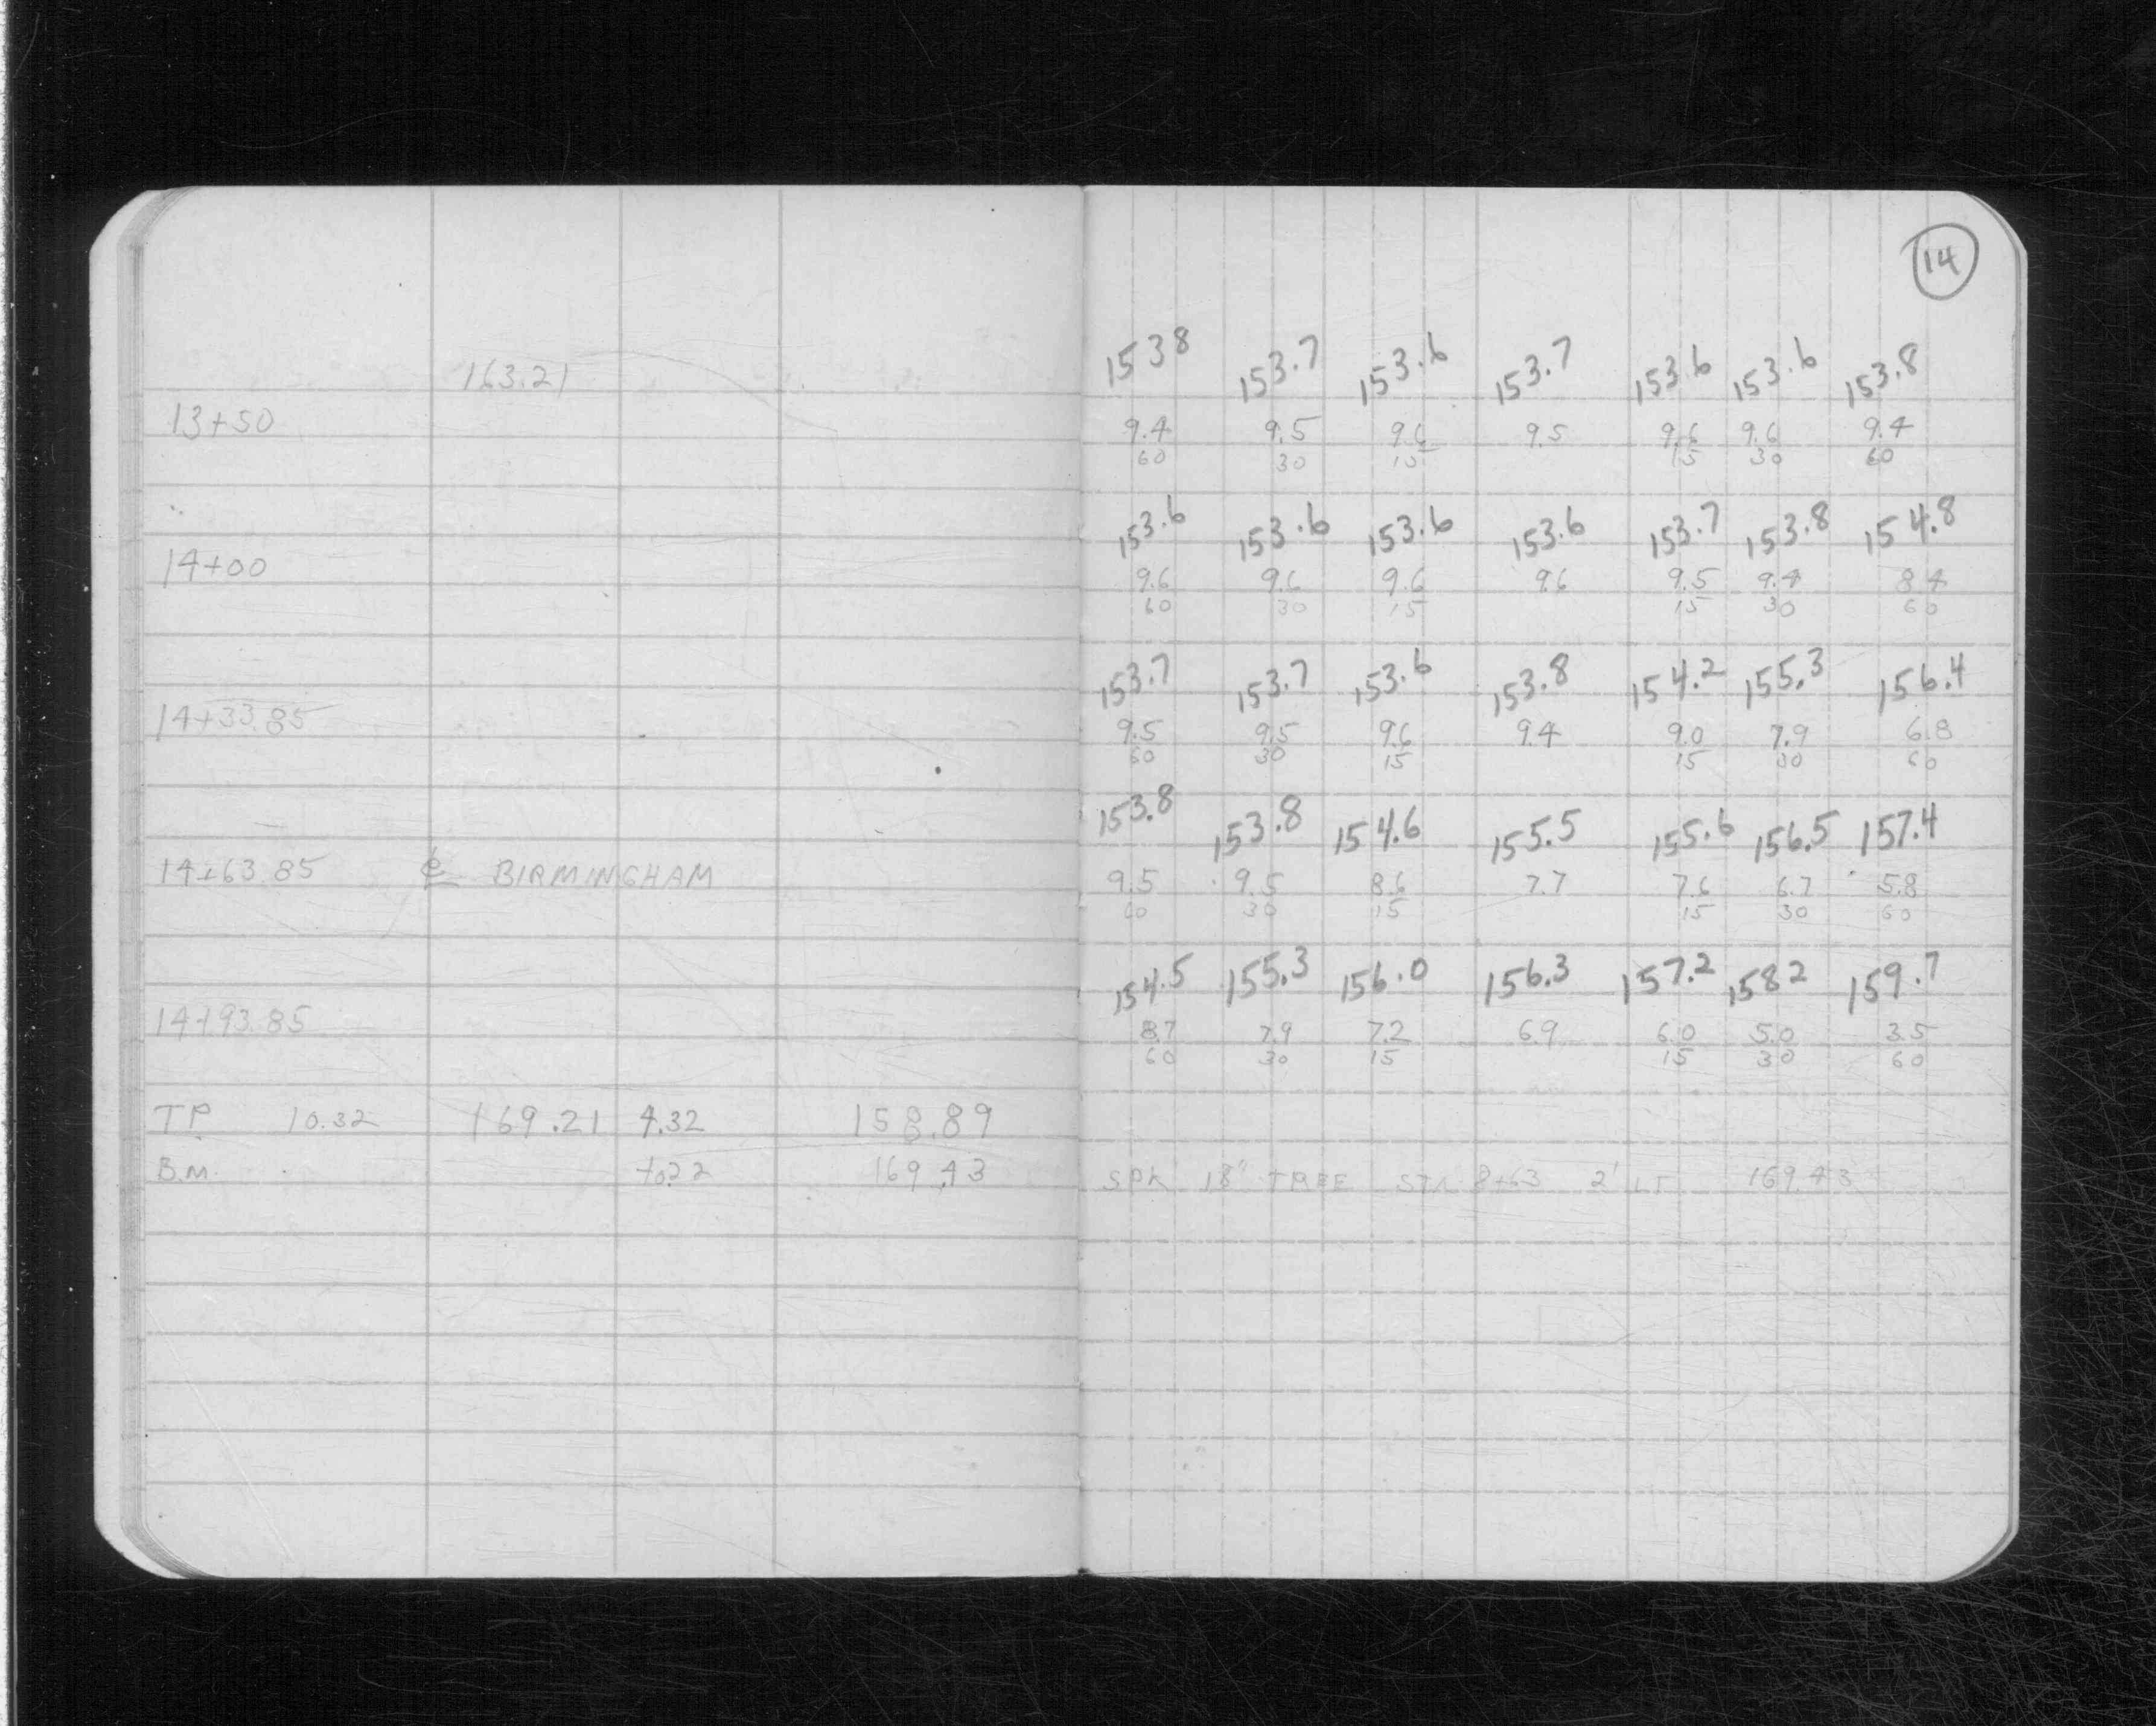 14
163.21
1538 153.7 153.6 153.7 153.6 153.6 153.8
13+50 9.4 9.5 9.6 9.5 9.6 9.6 9.4
60 30 15 15 30 60
153.6 153.6 153.6 153.6 153.7 153.8 154.8
14+00 9.6 9.6 9.6 9.6 9.5 9.4 8.4
60 30 15 15 30 60
153.7 153.7 153.6 153.8 154.2 155.3 156.4
14+33.85 9.5 9.5 9.6 9.4 9.0 7.9 6.8
60 30 15 15 30 60
153.8 153.8 154.6 155.5 155.6 156.5 157.4
14+63.85 ℄ BIRMINGHAM 9.5 9.5 8.6 7.7 7.6 6.7 5.8
60 30 15 15 30 60
154.5 155.3 156.0 156.3 157.2 1582 159.7
14+93.85 8.7 7.9 7.2 6.9 6.0 5.0 3.5
60 30 15 15 30 60
TP 10.32 169.21 4.32 158.89
B.M. 169.43 SPK 18" TREE STA 8+63 2' LT 169.43